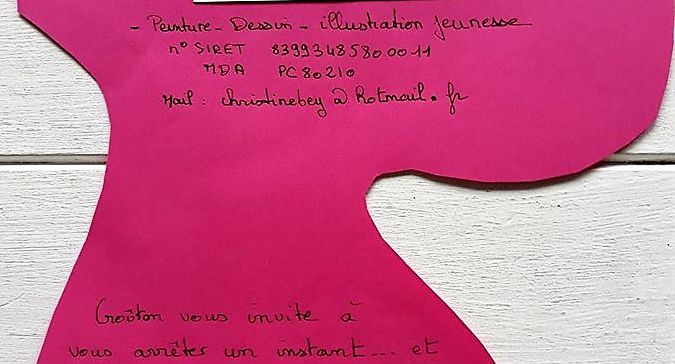 - Peinture - Dessin - illustration jeunesse
n° SIRET 83993485800011
MDA PC80210
Mail : christinebey@hotmail.fr
Croûton vous invite à
vous arrêter un instant... et